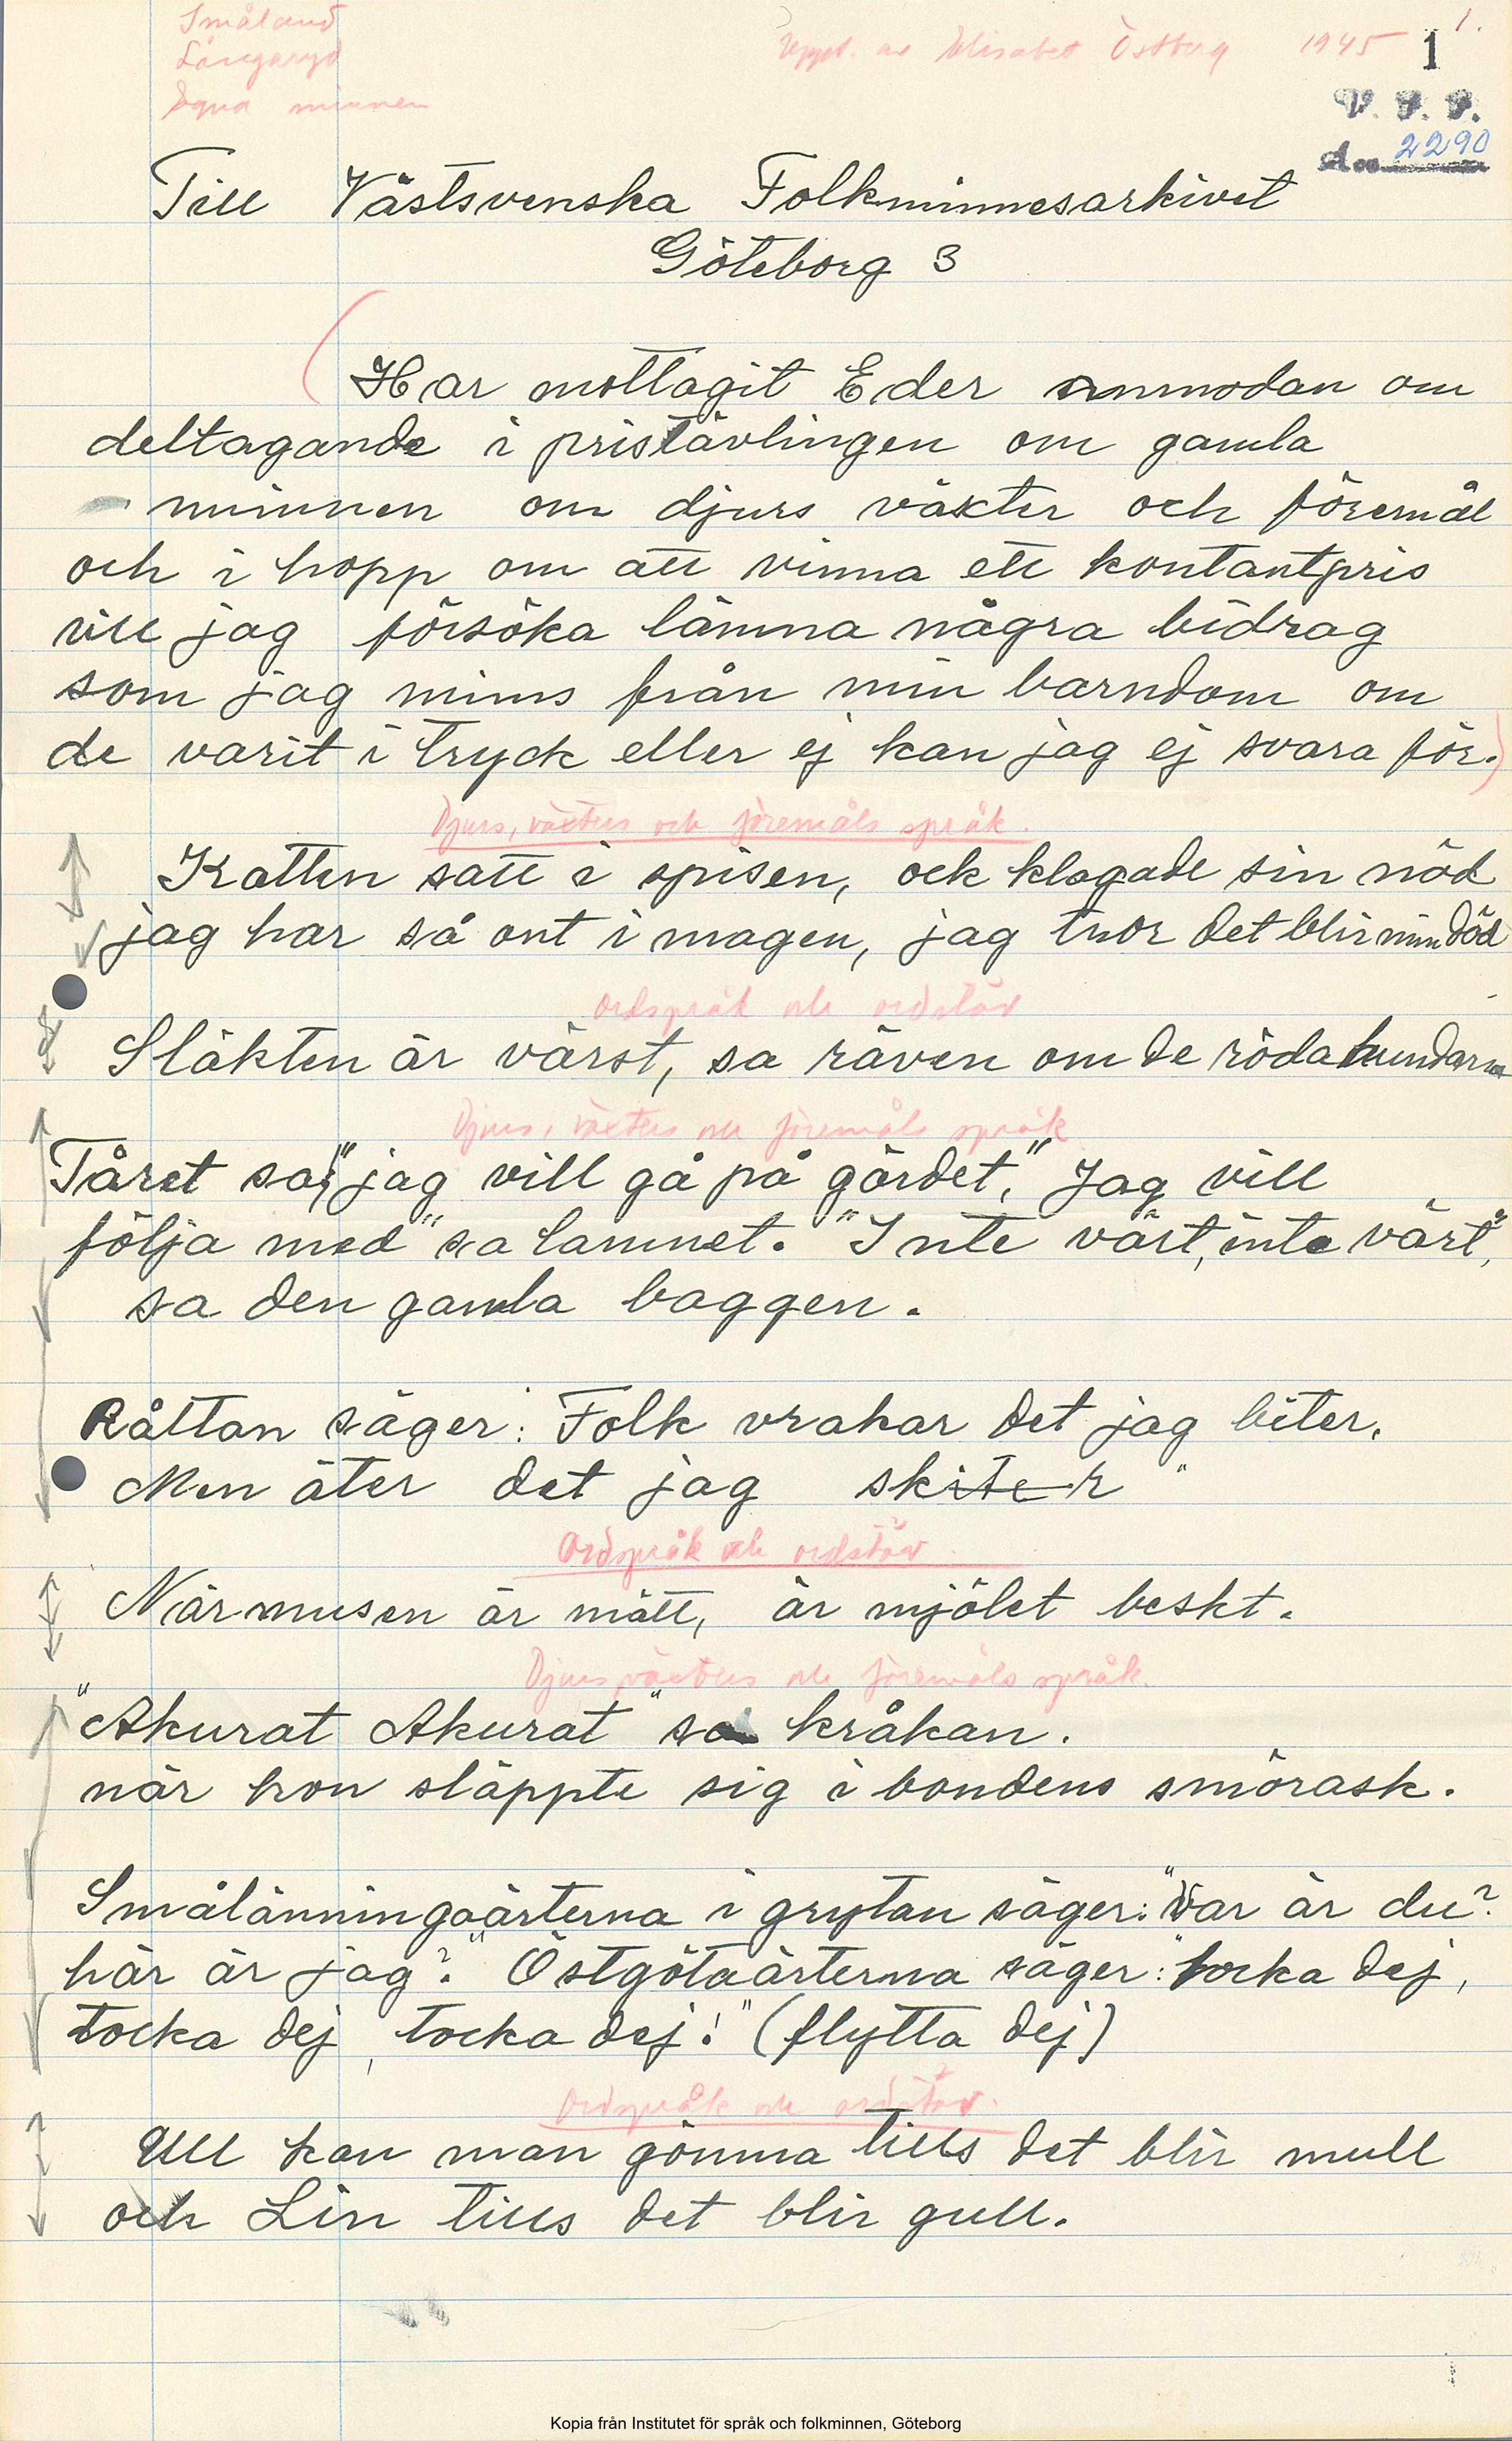 Småland
Långaryd
Egna minnen
Uppt. av Elisabet Östberg 1945
1.
1
V. F. F.
Acc 2290
Till Västsvenska Folkminnesarkivet
Göteborg 3
Har mottagit Eder anmodan om
deltagande i pristävlingen om gamla
minnen om djurs växter och föremål
och i hopp om att vinna ett kontantpris
vill jag försöka lämna några bidrag
som jag minns från min barndom om
de varit i tryck eller ej kan jag ej svara för.
Djurs, växters och föremåls språk.
Katten satt i spisen, ock klagade sin nöd
jag har så ont i magen, jag tror det blir min död
Ordspråk och ordstäv
Släkten är värst, sa räven om de röda hundarna
Djurs, växters och föremåls språk
Fåret sa: "jag vill gå på gärdet." Jag vill
följa med" sa lammet. "Inte värt, inte värt",
sa den gamla baggen.
Råttan säger: Folk vrakar det jag biter.
Men äter det jag skiter"
Ordspråk och ordstäv.
När musen är mätt, är mjölet beskt.
Djurs, växters och föremåls språk.
"Akurat Akurat" sa kråkan.
när hon släppte sig i bondens smörask.
Smålänningaärterna i grytan säger: "Var är du?
här är jag?." Östgötaärterna säger: "tocka dej,
tocka dej, tocka dej!" (flytta dej)
Ordspråk och ordstäv.
Ull kan man gömma tills det blir mull
och Lin tills det blir gull.
Kopia från Institutet för språk och folkminnen, Göteborg